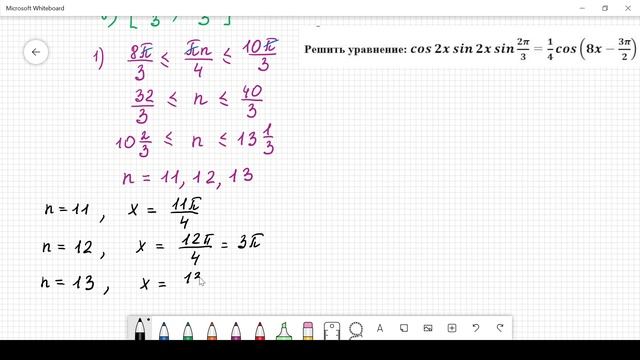 Microsoft Whiteboard
Решить уравнение: cos 2x sin 2x sin 2π/3 = 1/4 cos (8x − 3π/2)
1) 8π/3 ≤ πn/4 ≤ 10π/3
32/3 ≤ n ≤ 40/3
10 2/3 ≤ n ≤ 13 1/3
n = 11, 12, 13
n = 11, x = 11π/4
n = 12, x = 12π/4 = 3π
n = 13, x =